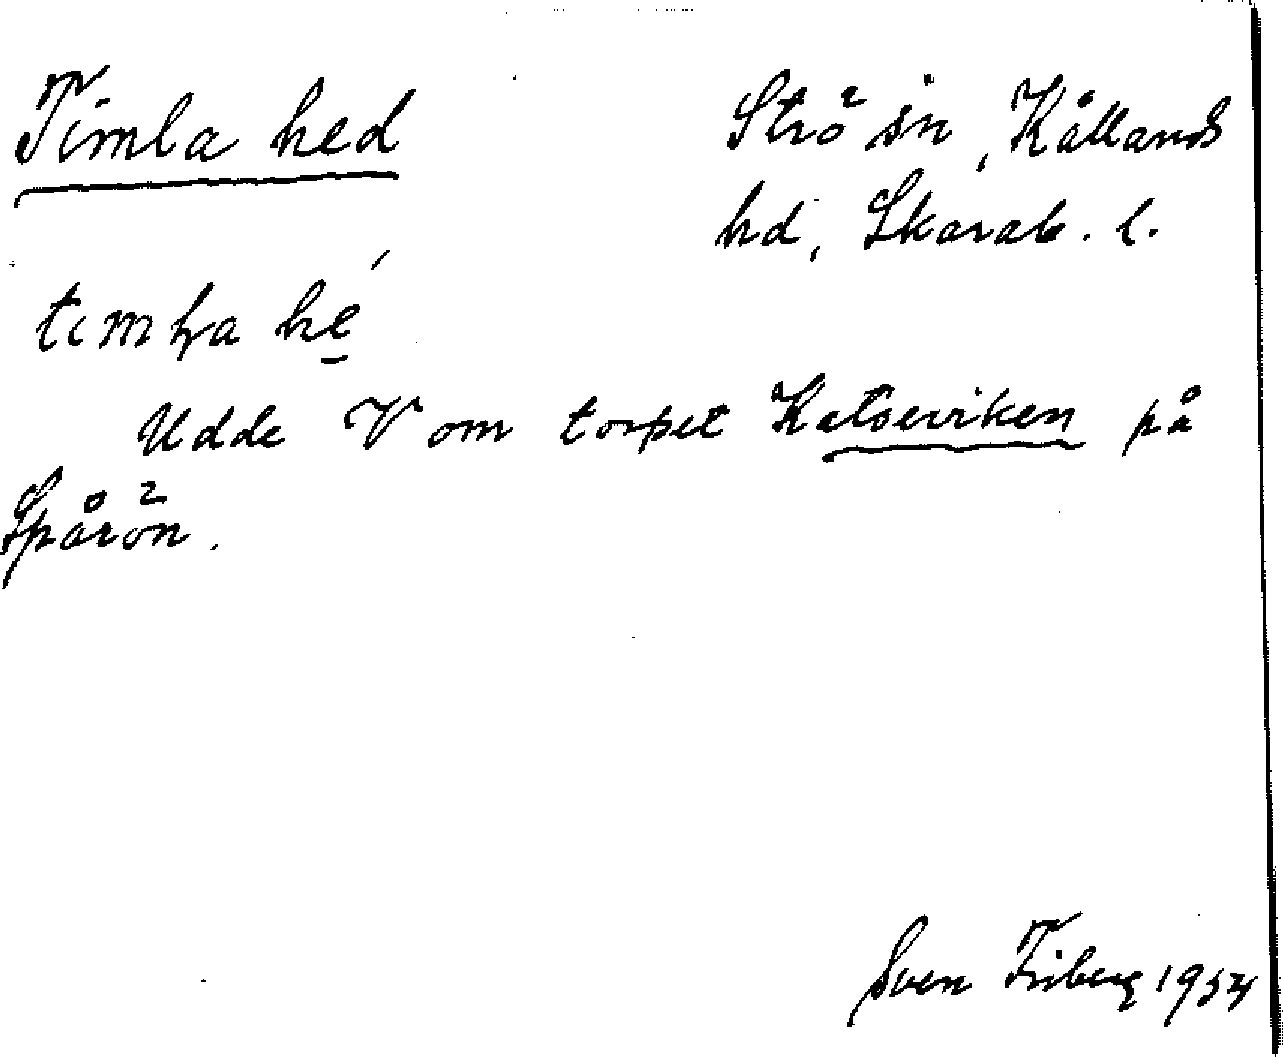 Timla hed
Strö sn, Kållands
hd, Skarab. l.
timḷa hé
Udde V om torpet Katseviken på
Spårön.
Sven Friberg 1954